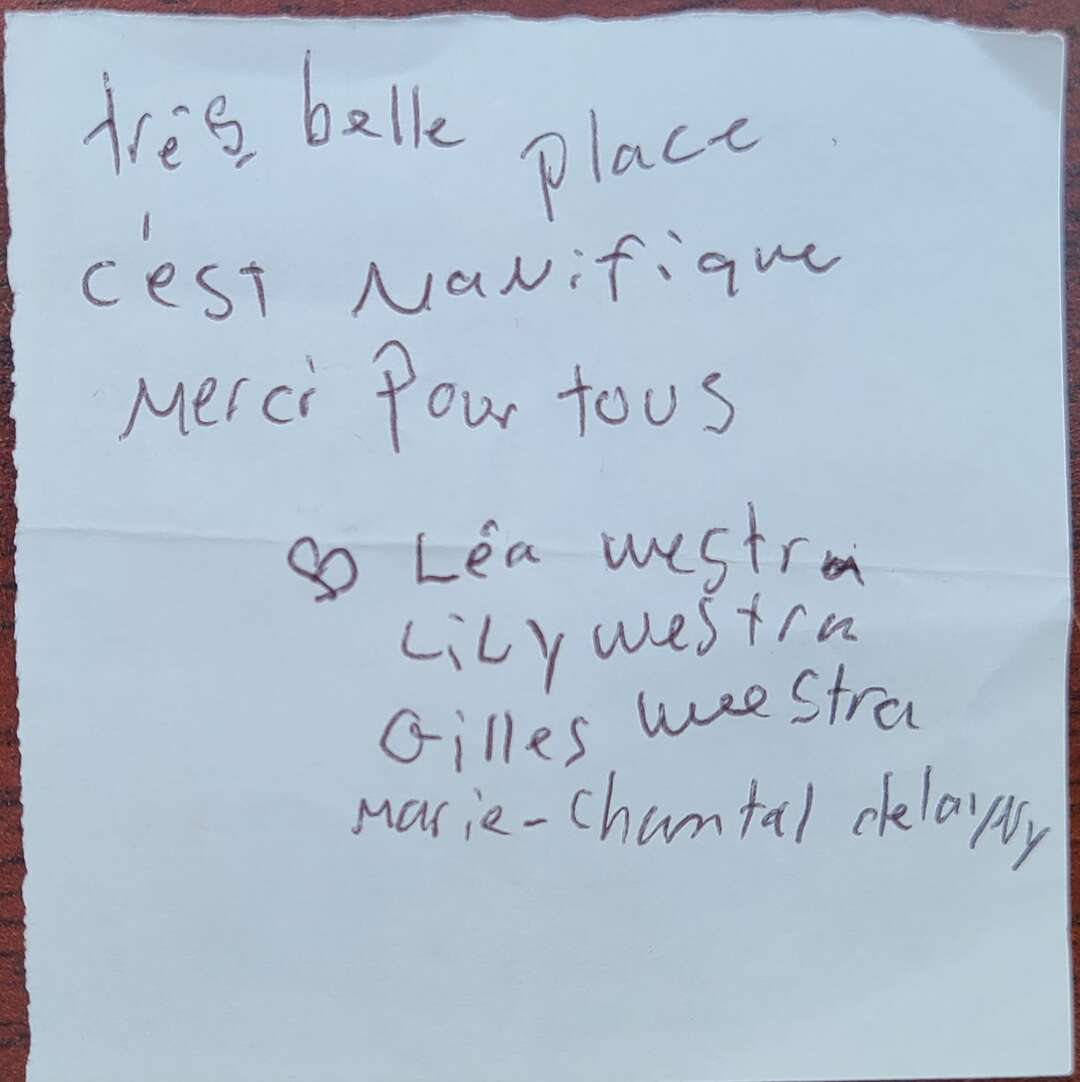 très belle place
c'est Manifique
Merci Pour tous
Léa westra
LiLy westra
Gilles westra
Marie-Chantal